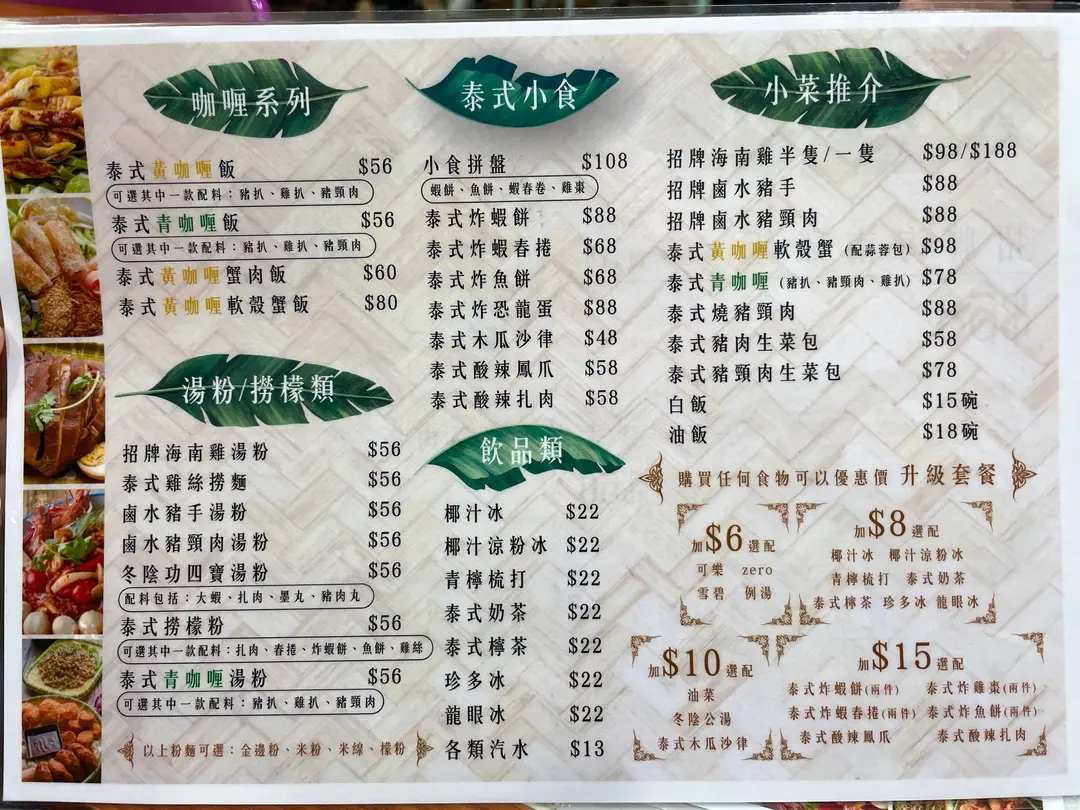 咖喱系列
泰式黃咖喱飯 $56
可選其中一款配料：豬扒、雞扒、豬頸肉
泰式青咖喱飯 $56
可選其中一款配料：豬扒、雞扒、豬頸肉
泰式黃咖喱蟹肉飯 $60
泰式黃咖喱軟殼蟹飯 $80
湯粉/撈檬類
招牌海南雞湯粉 $56
泰式雞絲撈麵 $56
鹵水豬手湯粉 $56
鹵水豬頸肉湯粉 $56
冬陰功四寶湯粉 $56
配料包括：大蝦、扎肉、墨丸、豬肉丸
泰式撈檬粉 $56
可選其中一款配料：扎肉、春捲、炸蝦餅、魚餅、雞絲
泰式青咖喱湯粉 $56
可選其中一款配料：豬扒、雞扒、豬頸肉
以上粉麵可選：金邊粉、米粉、米線、檬粉
泰式小食
小食拼盤 $108
蝦餅、魚餅、蝦春卷、雞棗
泰式炸蝦餅 $88
泰式炸蝦春捲 $68
泰式炸魚餅 $68
泰式炸恐龍蛋 $88
泰式木瓜沙律 $48
泰式酸辣鳳爪 $58
泰式酸辣扎肉 $58
飲品類
椰汁冰 $22
椰汁涼粉冰 $22
青檸梳打 $22
泰式奶茶 $22
泰式檸茶 $22
珍多冰 $22
龍眼冰 $22
各類汽水 $13
小菜推介
招牌海南雞半隻/一隻 $98/$188
招牌鹵水豬手 $88
招牌鹵水豬頸肉 $88
泰式黃咖喱軟殼蟹(配蒜蓉包) $98
泰式青咖喱(豬扒、豬頸肉、雞扒) $78
泰式燒豬頸肉 $88
泰式豬肉生菜包 $58
泰式豬頸肉生菜包 $78
白飯 $15碗
油飯 $18碗
購買任何食物可以優惠價 升級套餐
加$6選配
可樂 zero
雪碧 例湯
加$8選配
椰汁冰 椰汁涼粉冰
青檸梳打 泰式奶茶
泰式檸茶 珍多冰 龍眼冰
加$10選配
油菜
冬陰公湯
泰式木瓜沙律
加$15選配
泰式炸蝦餅(兩件) 泰式炸雞棗(兩件)
泰式炸蝦春捲(兩件) 泰式炸魚餅(兩件)
泰式酸辣鳳爪 泰式酸辣扎肉